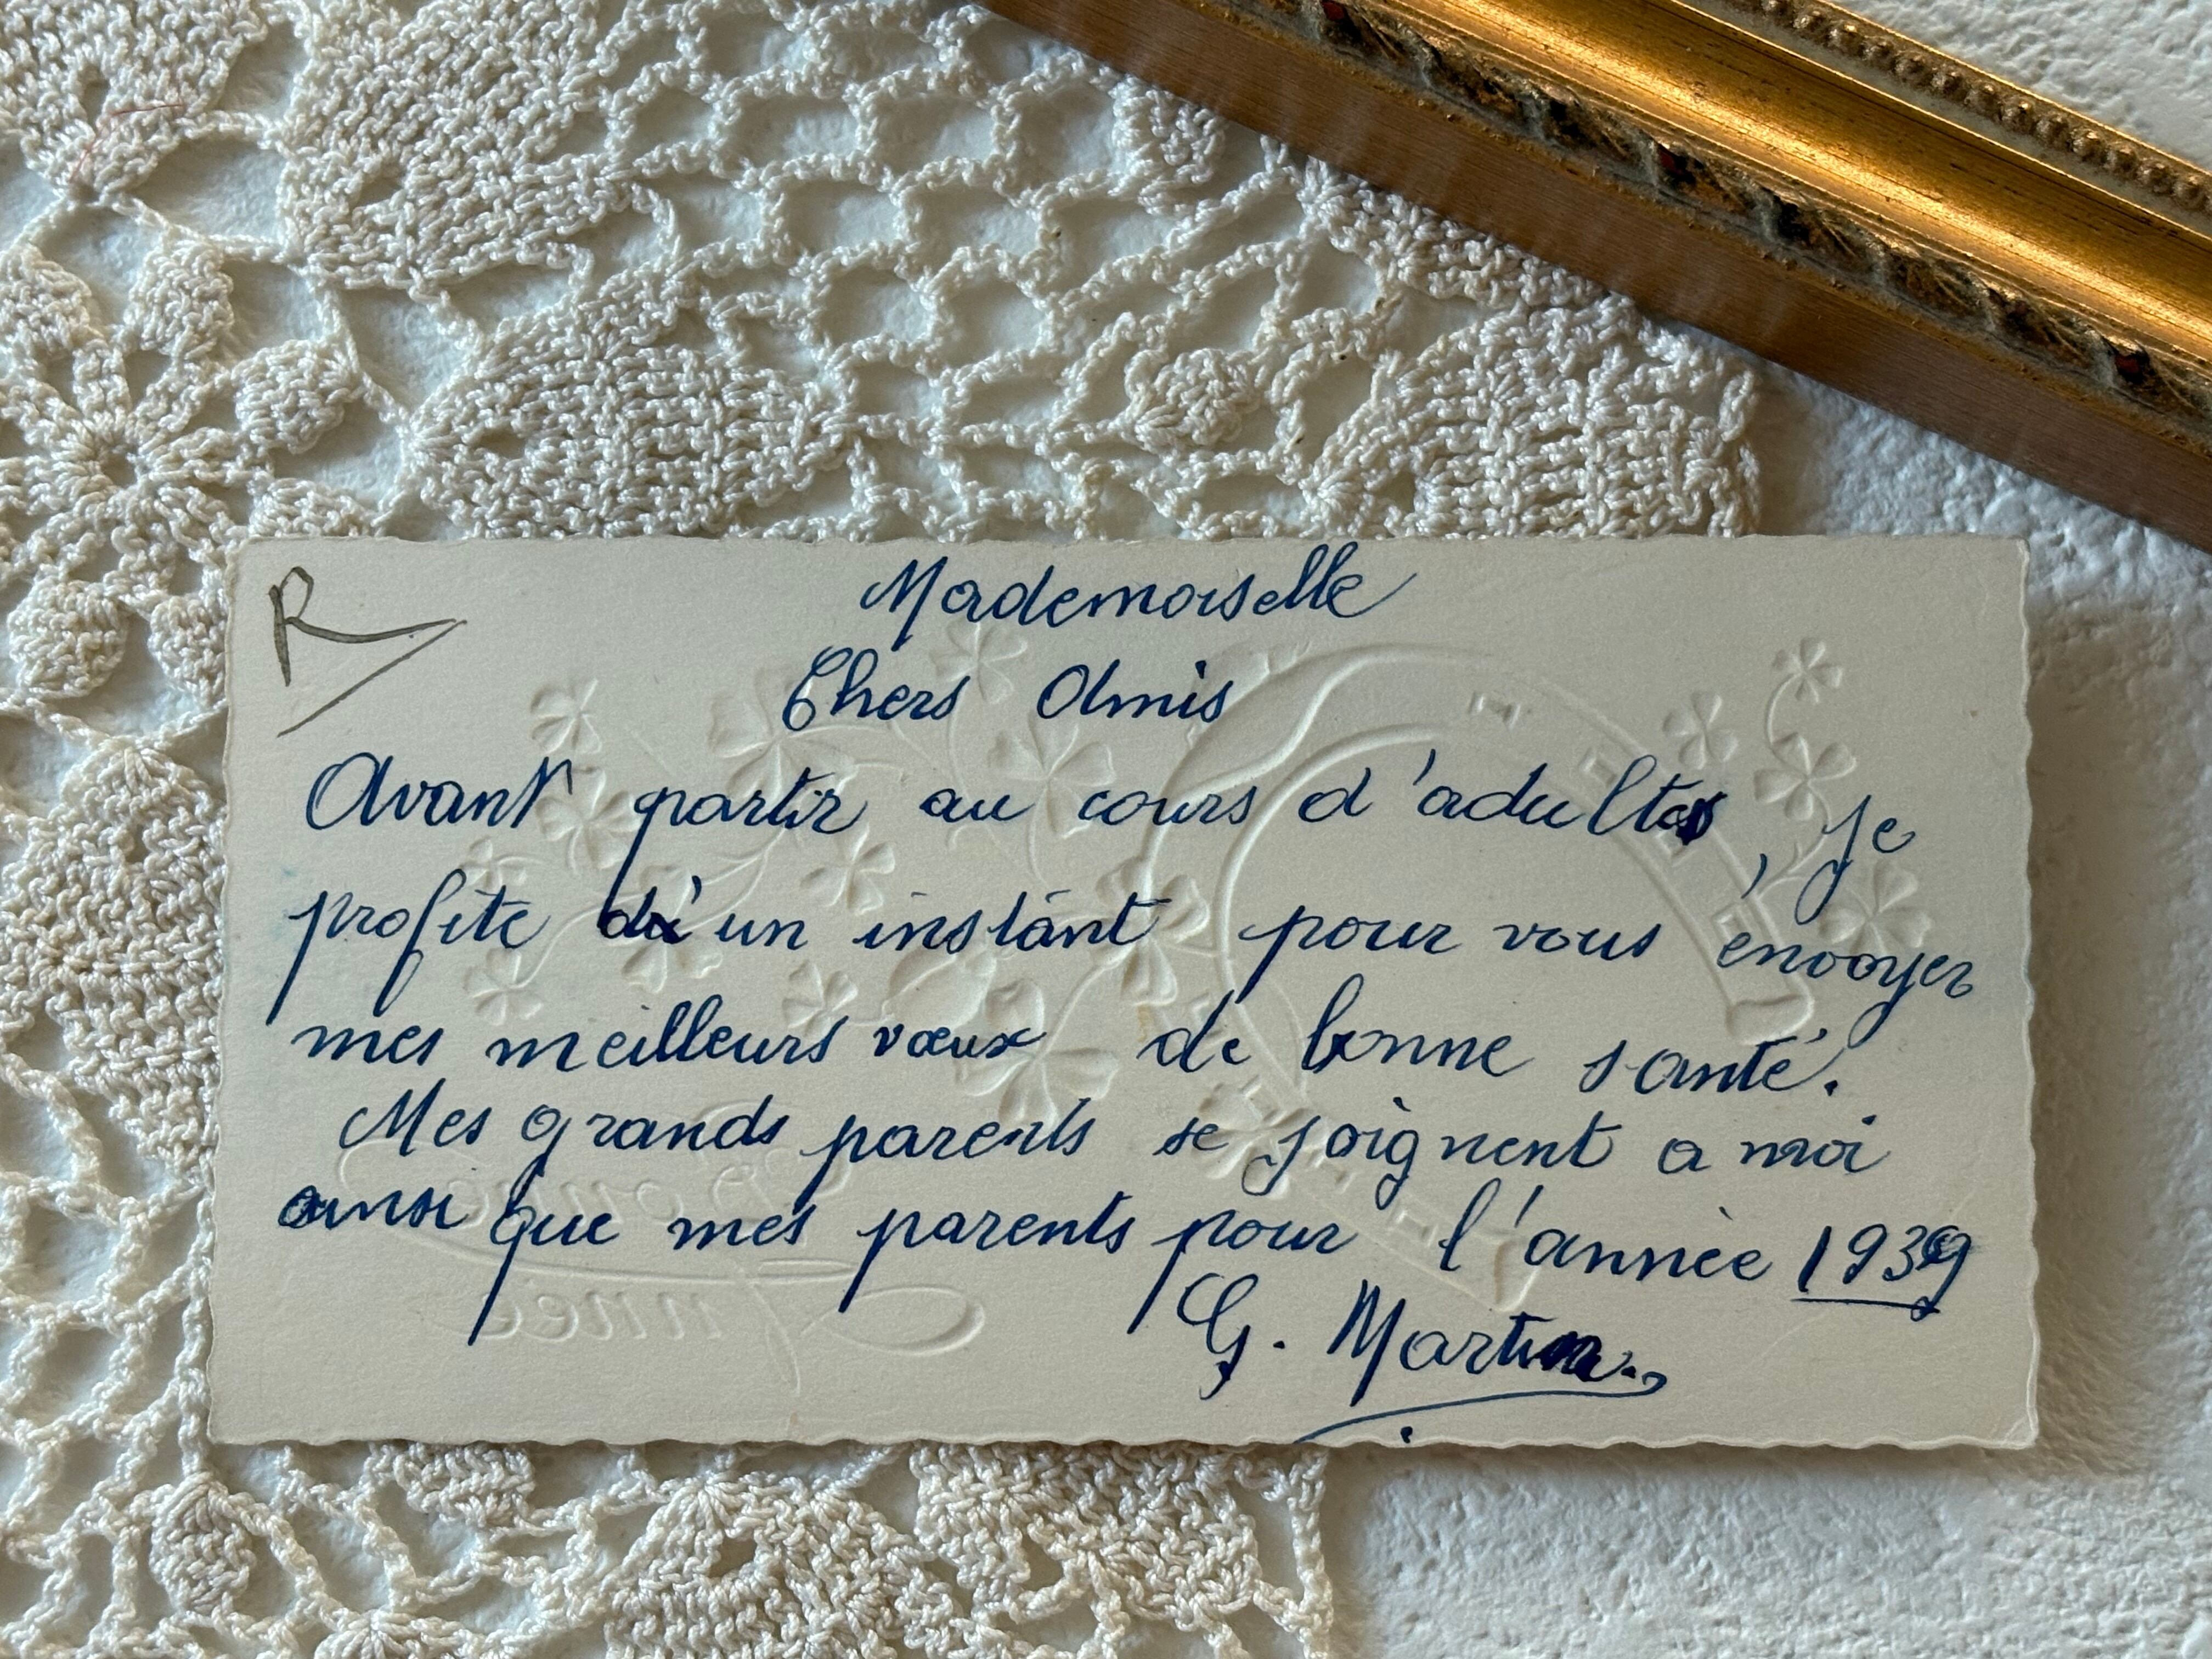 R
Mademoiselle
Chers Amis
Avant partir au cours d'adultes, je
profite d'un instant pour vous envoyer
mes meilleurs vœux de bonne santé.
Mes grands parents se joignent a moi
ainsi que mes parents pour l'année 1939
G. Martin.
Bonne
Année